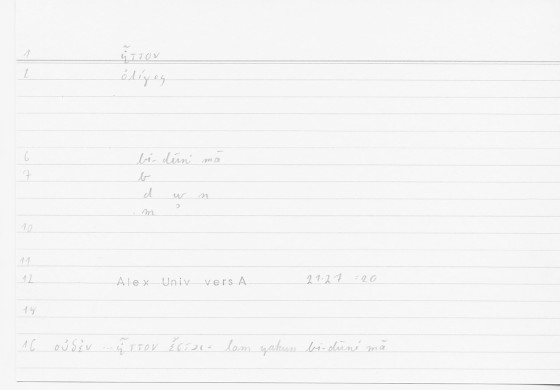 1 ἧττον
2 ὀλίγος
6 bi-dūni mā
7 b
d w n
m
10
11
12 Alex Univ vers A 21.27
14
16 οὐδὲν ... ἧττον ἔσται lam yakun bi-dūni mā